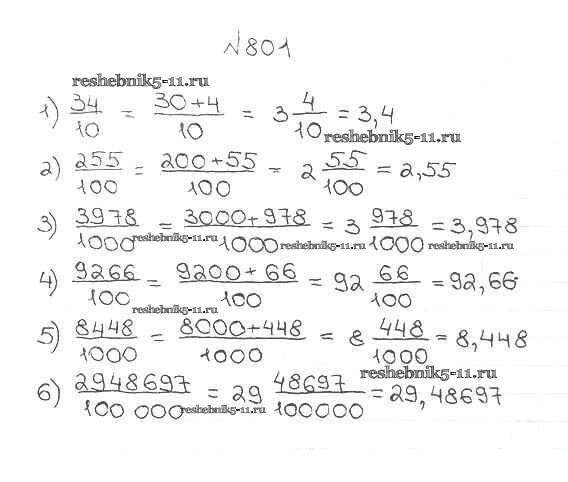 №801
reshebnik5-11.ru
1) 34/10 = (30+4)/10 = 3 4/10 = 3,4
reshebnik5-11.ru
2) 255/100 = (200+55)/100 = 2 55/100 = 2,55
3) 3978/1000 = (3000+978)/1000 = 3 978/1000 = 3,978
reshebnik5-11.ru reshebnik5-11.ru reshebnik5-11.ru
4) 9266/100 = (9200+66)/100 = 92 66/100 = 92,66
reshebnik5-11.ru
5) 8448/1000 = (8000+448)/1000 = 8 448/1000 = 8,448
reshebnik5-11.ru
6) 2948697/100 000 = 29 48697/100000 = 29,48697
reshebnik5-11.ru